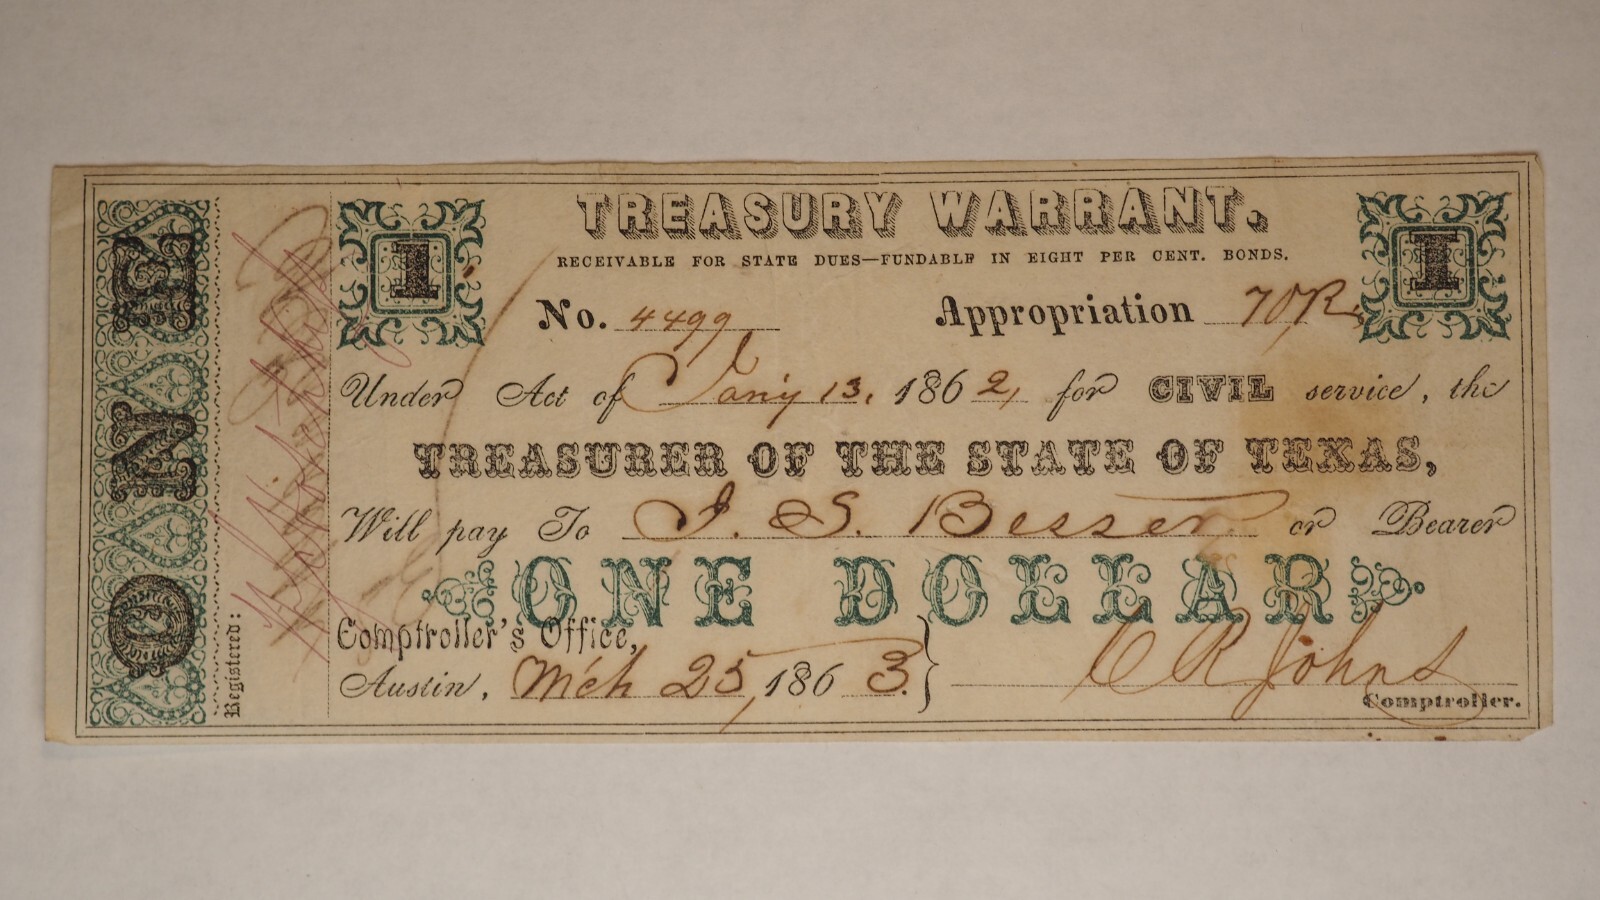 TREASURY WARRANT.
RECEIVABLE FOR STATE DUES—FUNDABLE IN EIGHT PER CENT. BONDS.
1
1
No. 4499 Appropriation 70R,
Under Act of Jan'y 13, 1862, for CIVIL service, the
TREASURER OF THE STATE OF TEXAS,
Will pay To J. S. Besser or Bearer
ONE DOLLAR
Comptroller's Office,
Austin, Mch 25, 1863. C R Johns
Comptroller.
ONE
Registered: